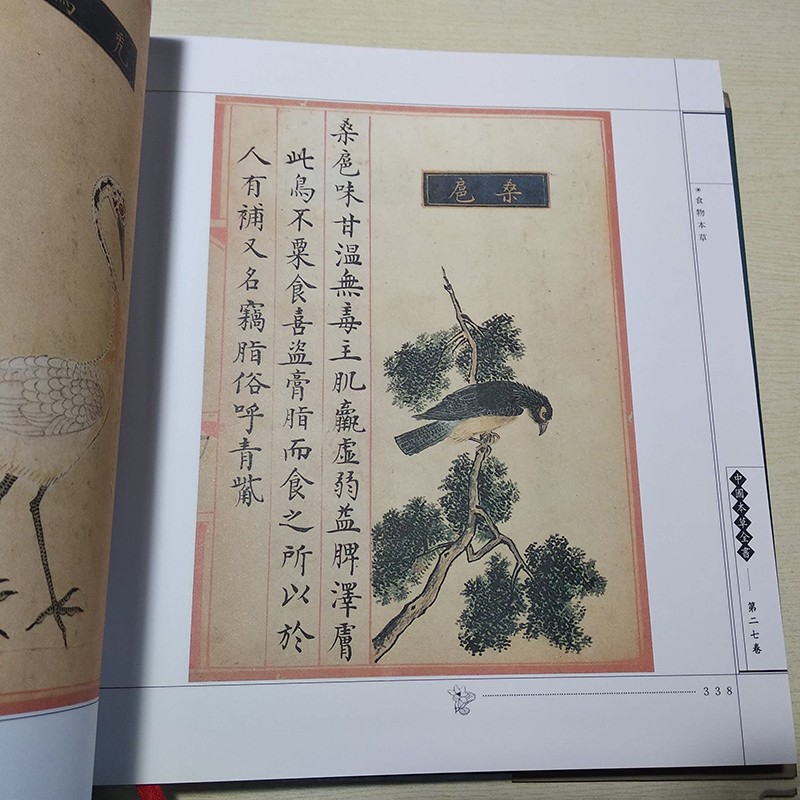 桑扈
桑扈味甘温無毒主肌羸虛弱益脾澤膚
此鳥不粟食喜盗膏脂而食之所以於
人有補又名竊脂俗呼青觜
食物本草
中國本草全書
第二七卷
338